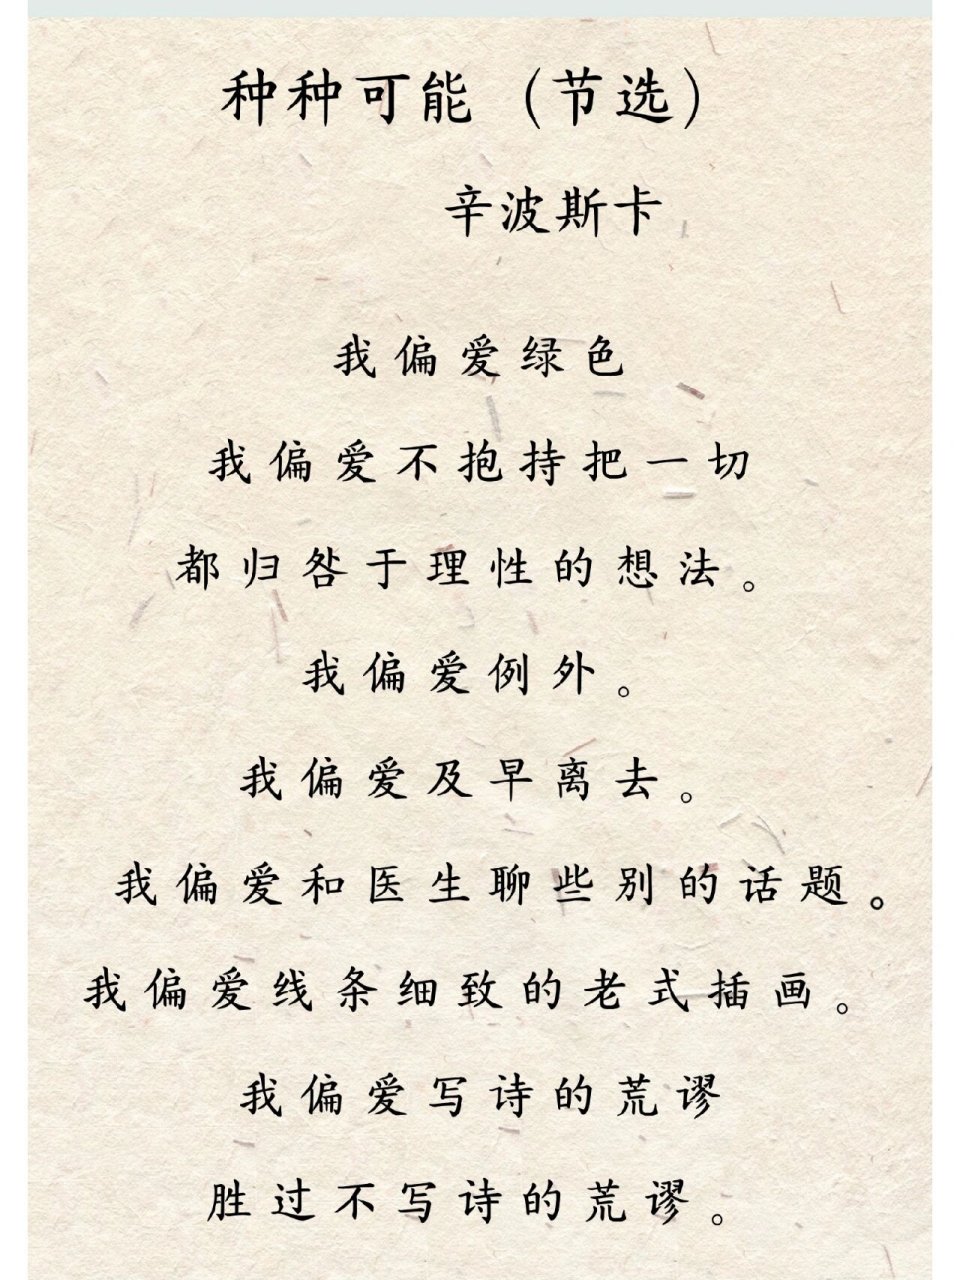 种种可能（节选）
辛波斯卡
我偏爱绿色
我偏爱不抱持把一切
都归咎于理性的想法。
我偏爱例外。
我偏爱及早离去。
我偏爱和医生聊些别的话题。
我偏爱线条细致的老式插画。
我偏爱写诗的荒谬
胜过不写诗的荒谬。